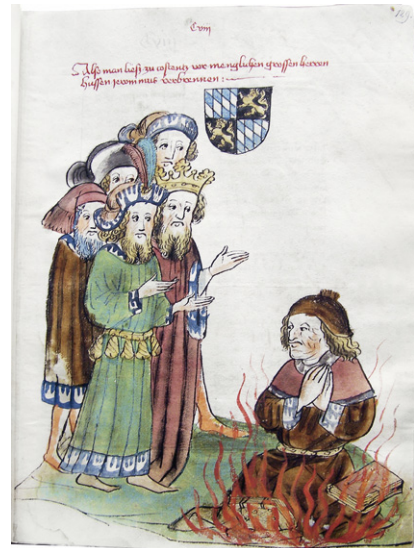 Cviij
Alß man ließ zu costentz vor menglichen grossen herren
hussen jeronimus verbrennen :